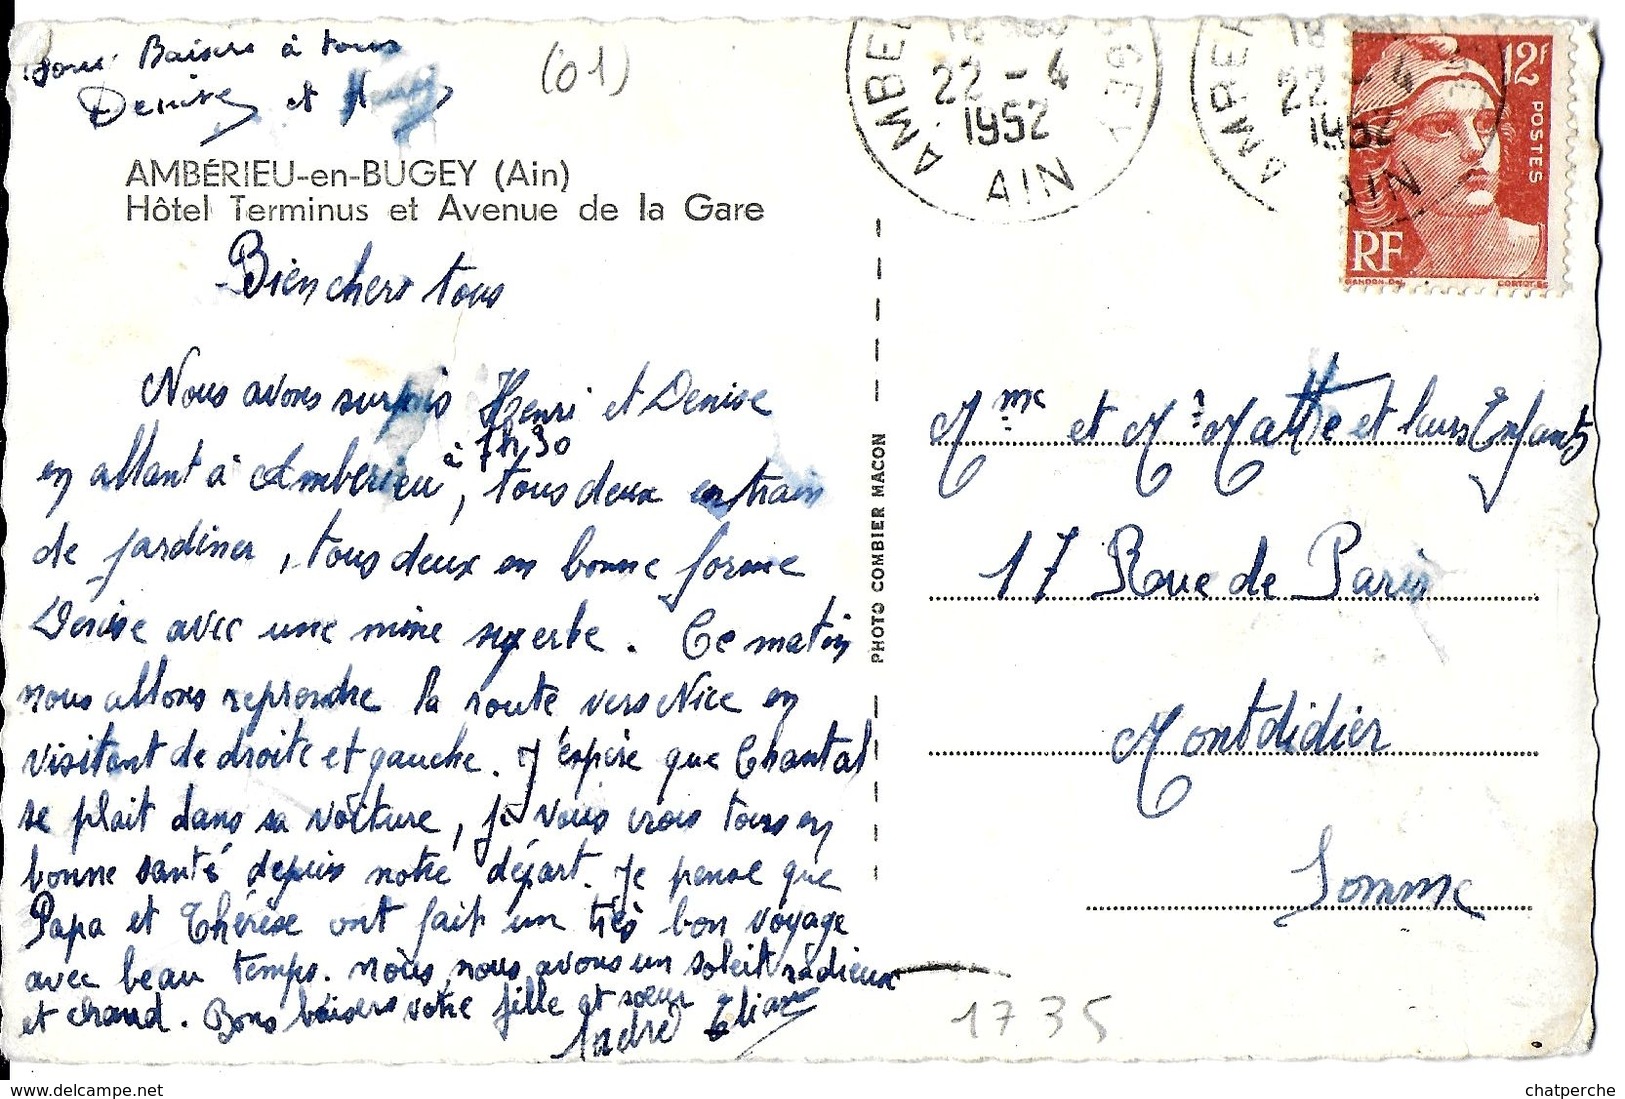 Baisers à tous
Denise et
(01)
AMBÉRIEU-en-BUGEY (Ain)
Hôtel Terminus et Avenue de la Gare
Bien chers tous
Nous avons surpris Henri et Denise
à 7h,30
en allant à Ambérieu, tous deux en train
de jardiner, tous deux en bonne forme
Denise avec une mine superbe. Ce matin
nous allons reprendre la route vers Nice en
visitant de droite et gauche. J'espère que Chantal
se plait dans sa voiture, je vous crois tous en
bonne santé depuis notre départ. Je pense que
Papa et Thérèse ont fait un très bon voyage
avec beau temps. nous, nous avons un soleil radieux
et chaud. Bons baisers votre fille et soeur
André Eliane
PHOTO COMBIER MACON
22 - 4
1952
AIN
22 - 4
1952
AIN
12f
POSTES
RF
GANDON Del.
CORTOT SC
Mme et Mr Matte et leurs Enfants
17 Rue de Paris
Montdidier
Somme
1735
www.delcampe.net
chatperche